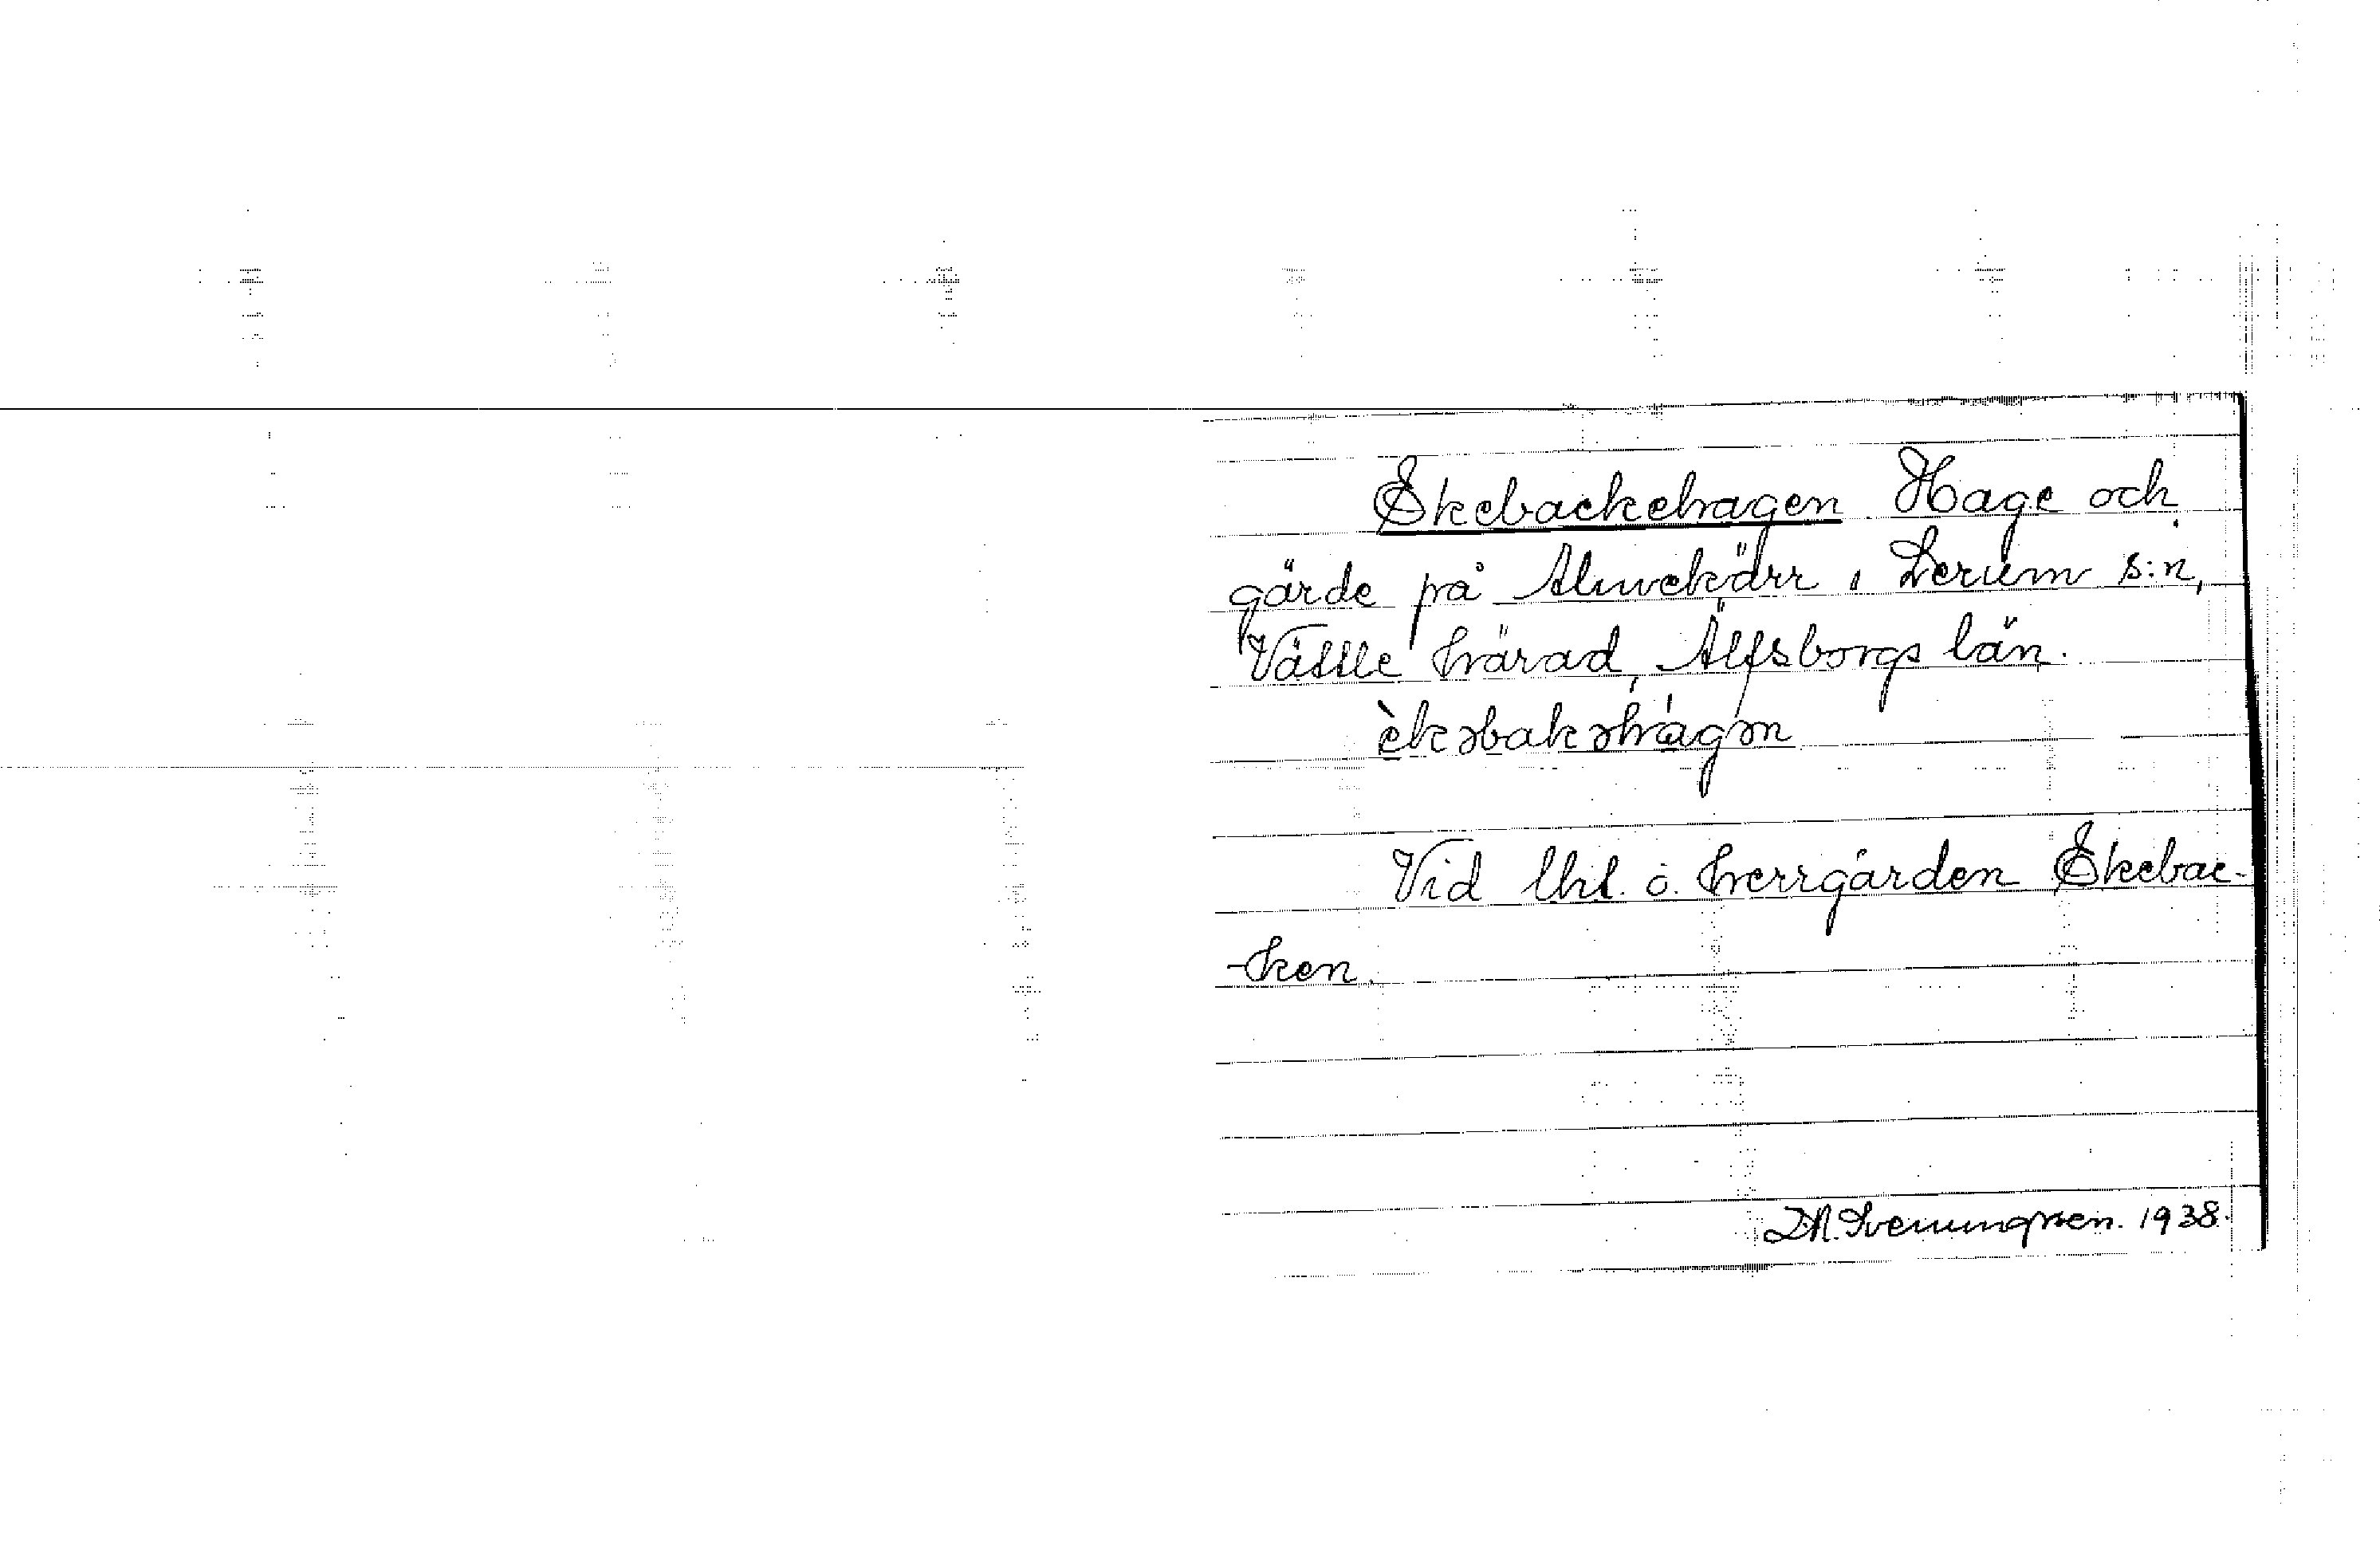 Ekebackehagen Hage och
gärde på Aluvekärr i Lerum s:n,
Vättle härad, Älfsborgs län.
èkəbakəhágən
Vid lht. o. herrgården Ekebac-
-ken.
1938.